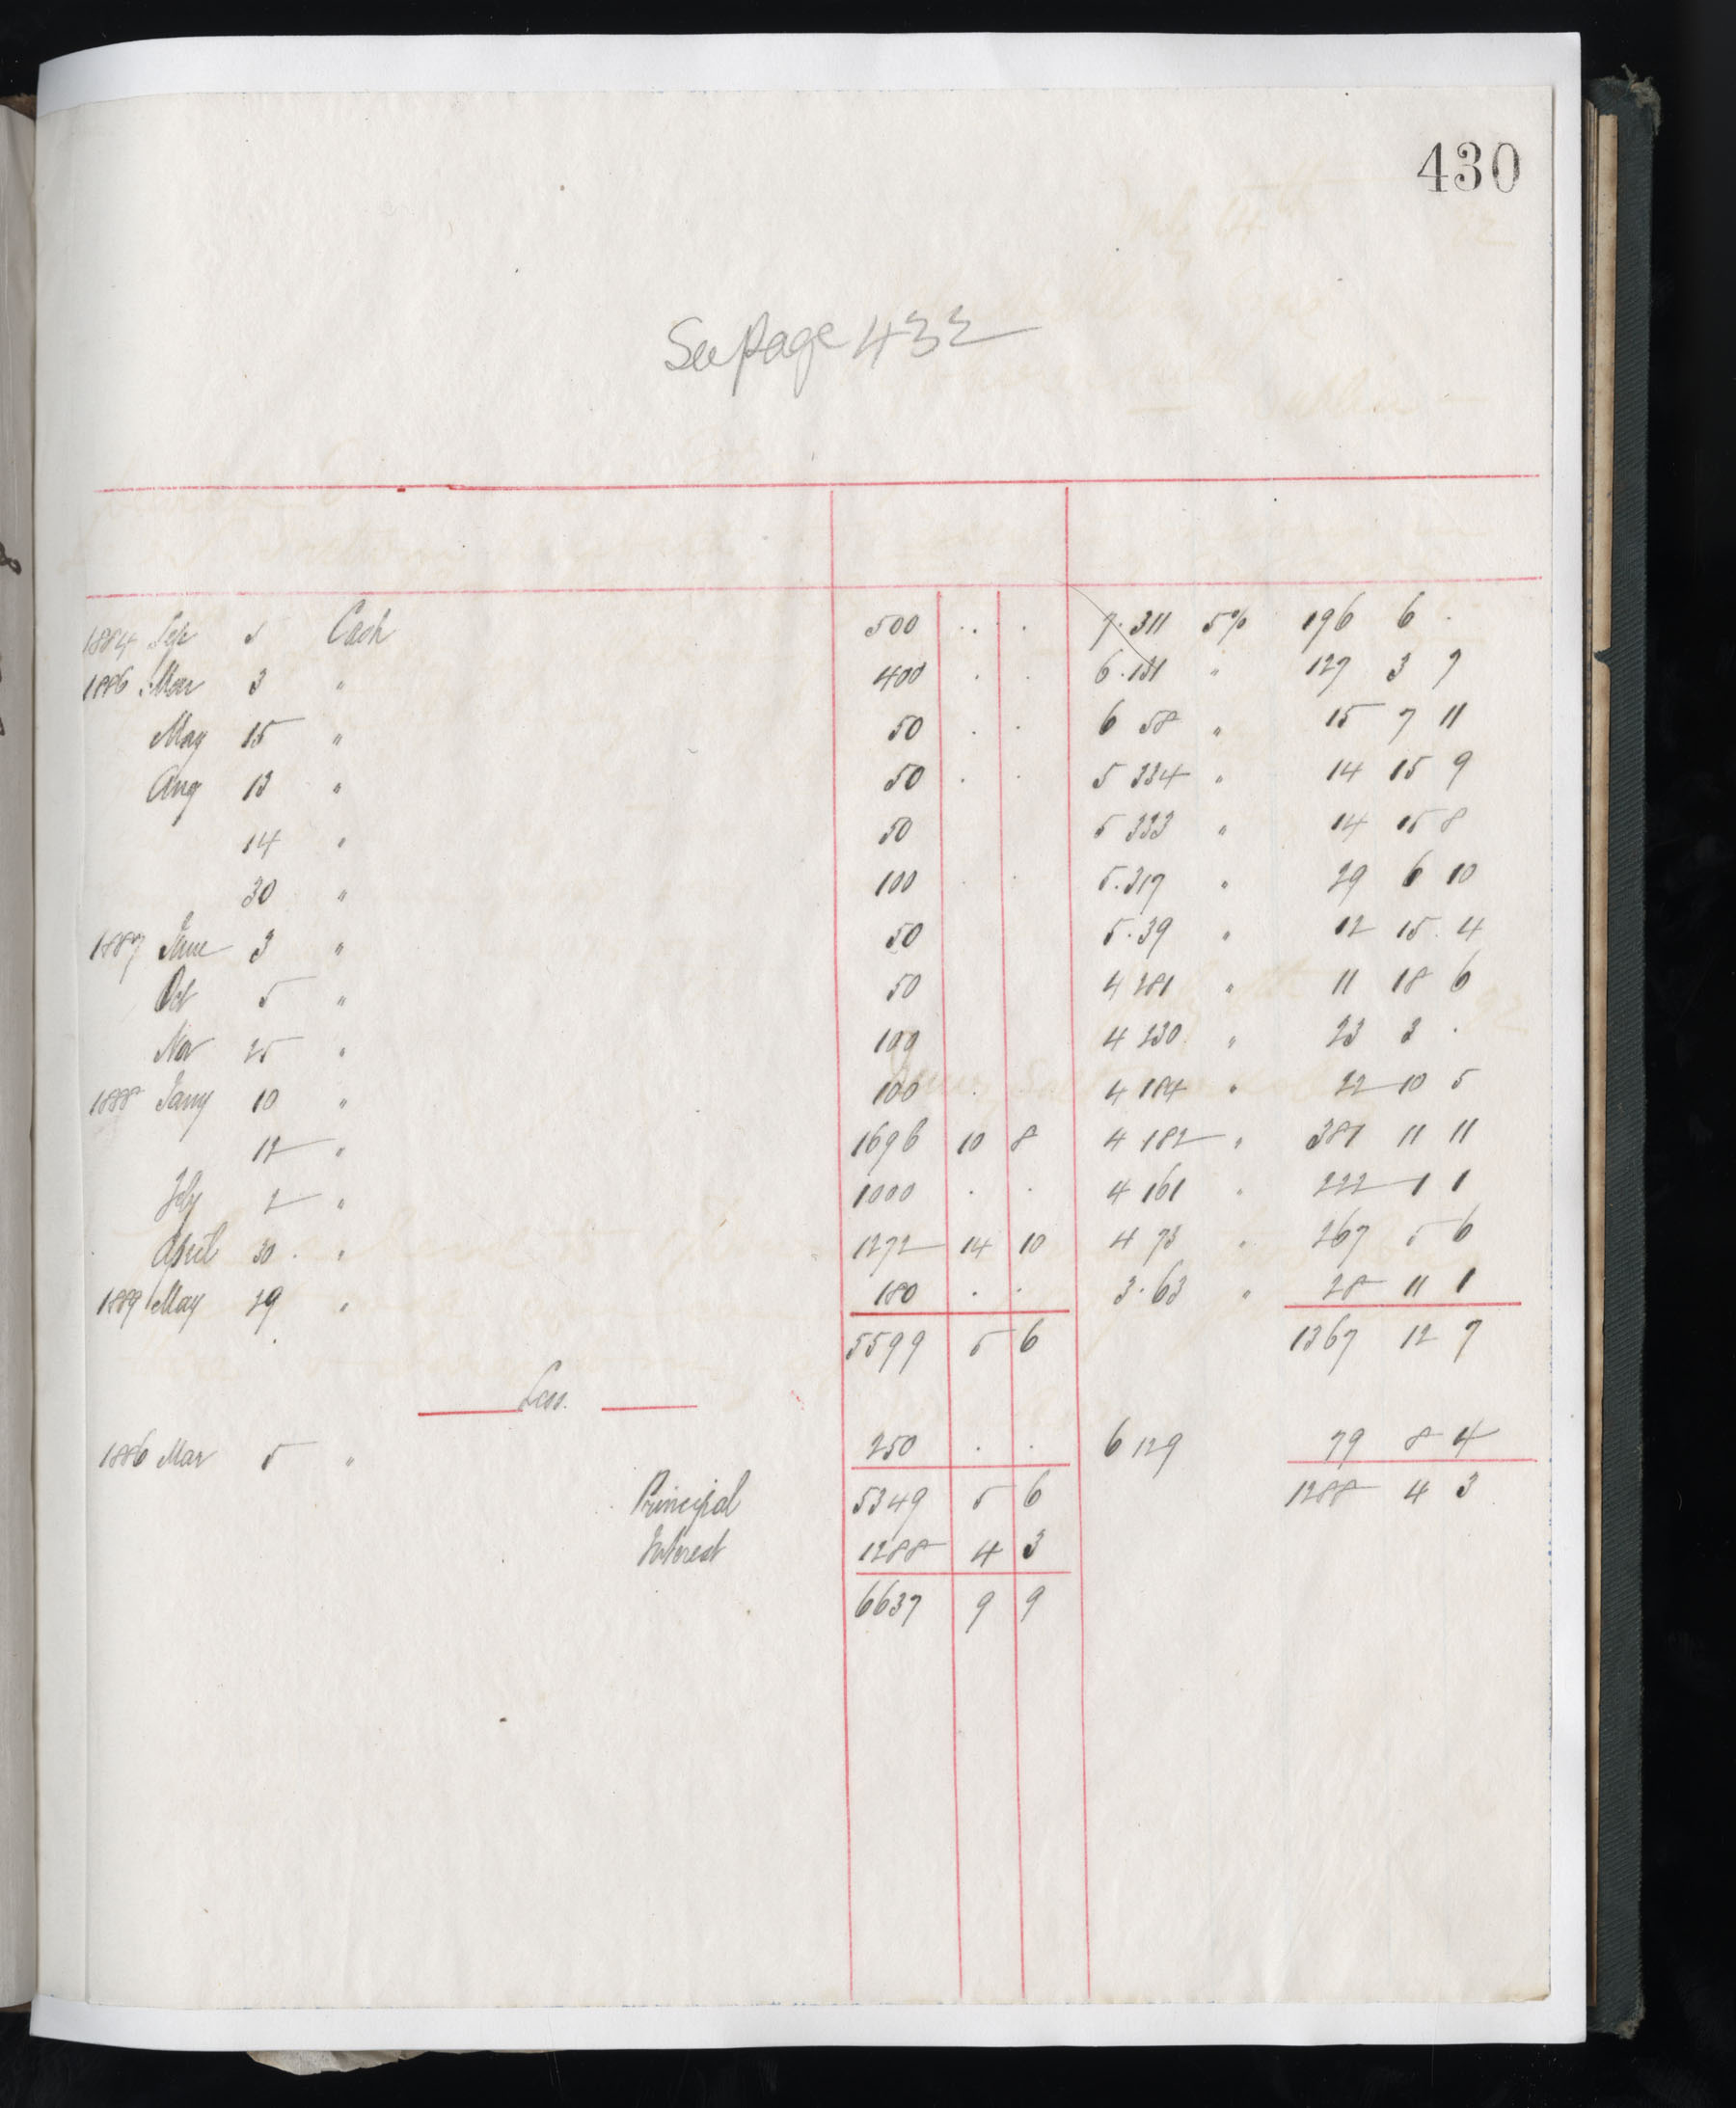 430
See page 432
1884 Sep 5 Cash 500 . . . 7.311 5% 196 6 .
1886 Mar 3 " 400 . . 6.131 " 127 3 7
May 15 " 50 . . 6 58 " 15 7 11
Aug 13 " 50 . . 5 334 " 14 15 9
14 " 50 5 333 " 14 15 8
30 " 100 . . 5.317 " 29 6 10
1887 June 3 " 50 5.39 " 12 15 . 4
Oct 5 " 50 4 281 " 11 18 6
Nov 25 " 100 4 230 " 23 3 .
1888 Jany 10 " 100 . 4 184 " 22 10 5
12 " 1696 10 8 4 182 " 381 11 11
Feby 2 " 1000 . . 4 161 " 222 1 1
April 30 . " 1272 14 10 4 73 " 267 5 6
1889 May 29 " 180 . . 3.63 " 28 11 1
5599 5 6 1367 12 7
Less.
1886 Mar 5 " 250 . . 6 129 79 8 4
Principal 5349 5 6 1288 4 3
Interest 1288 4 3
6637 9 9